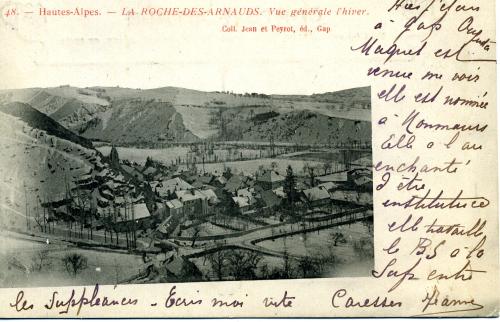 48. — Hautes-Alpes. — LA ROCHE-DES-ARNAUDS. Vue générale l'hiver.
Coll. Jean et Peyrot, éd., Gap
Hier j'étais
à Gap
Maquet est
venue me voir
elle est nommée
à Monmaurs
Elle a l'air
enchanté
d'être
institutrice
elle travaille
le BS a la
Sup entre
les Suppléances - Ecris moi vite Caresses Jeanne